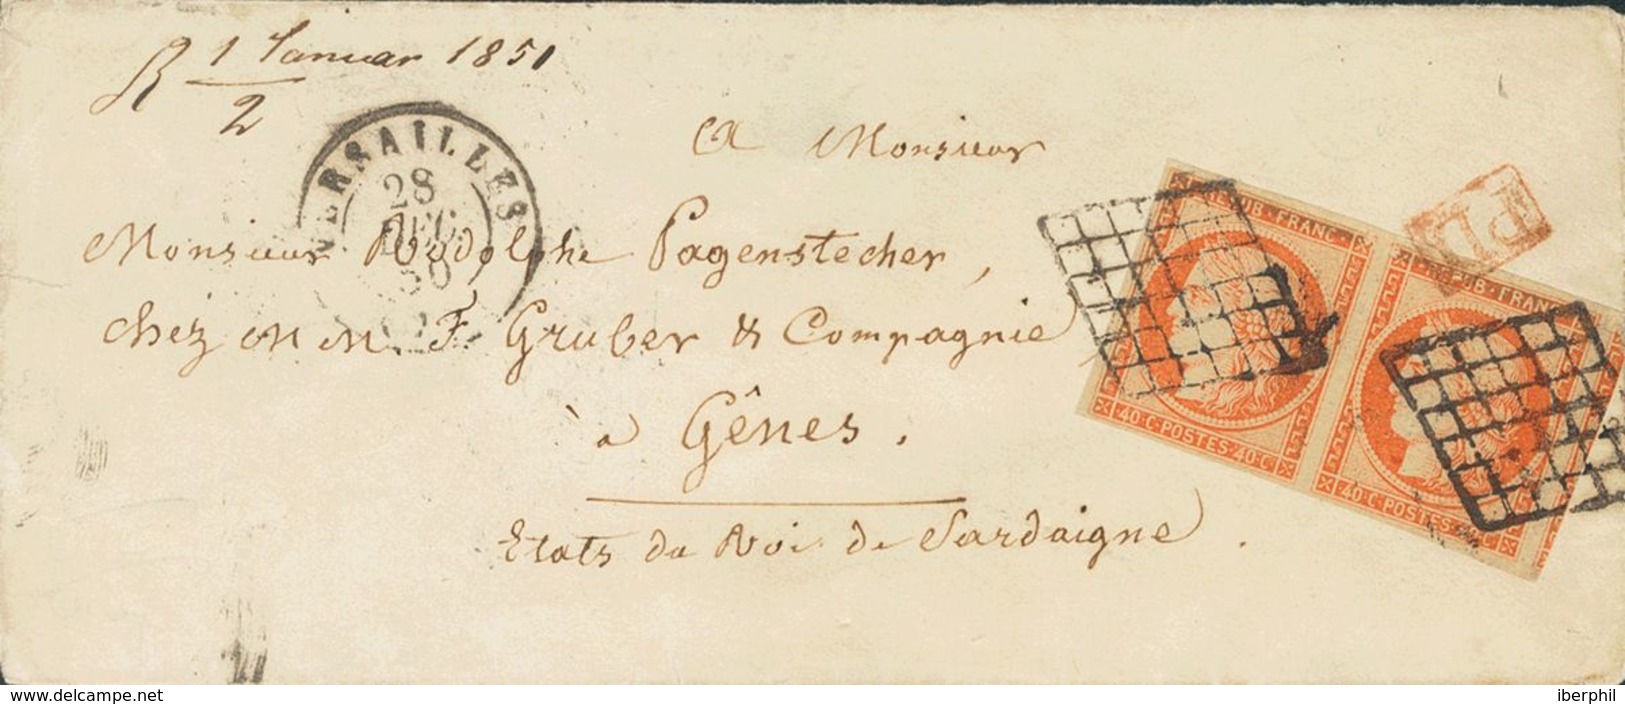 R 1 Januar 1851
2
VERSAILLES
28
DEC.
50
A Monsieur
Monsieur Rodolphe Pagenstecher,
chez M M. F. Gruber & Compagnie,
à Gênes.
Etats du Roi de Sardaigne.
PD
REPUB·FRANC·
40·C·POSTES·40·C·
REPUB·FRANC·
40·C·POSTES·
www.delcampe.net
iberphil